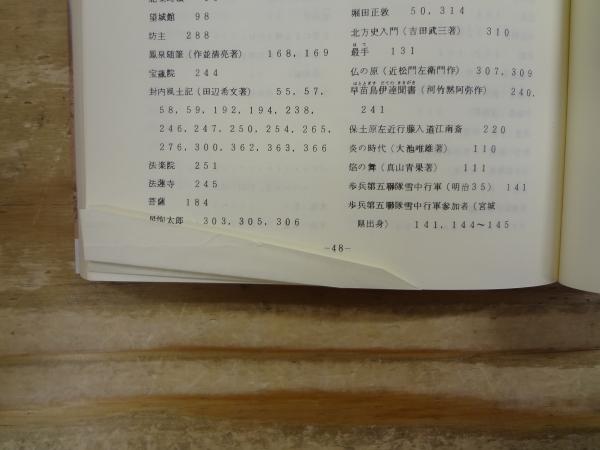 望城館　98
坊主　288
鳳泉随筆（作並清亮著）　168，169
宝蔵院　244
封内風土記（田辺希文著）　55，57，
58，59，192，194，238，
246，247，250，254，265，
276，300，362，363，366
法楽院　251
法蓮寺　245
菩薩　184
太郎　303，305，306
堀田正敦　50，314
北方史入門（吉田武三著）　310
最手　131
仏の原（近松門左衛門作）　307，309
早苗鳥伊達聞書（河竹黙阿弥作）　240，
241
保土原左近行藤入道江南斎　220
炎の時代（大池唯雄著）　110
焔の舞（真山青果著）　111
歩兵第五聯隊雪中行軍（明治35）　141
歩兵第五聯隊雪中行軍参加者（宮城
県出身）　141，144～145
－48－